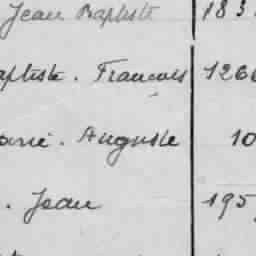 Jean Baptiste 183
aptiste. Francois 126
Auguste 10
. Jean 195